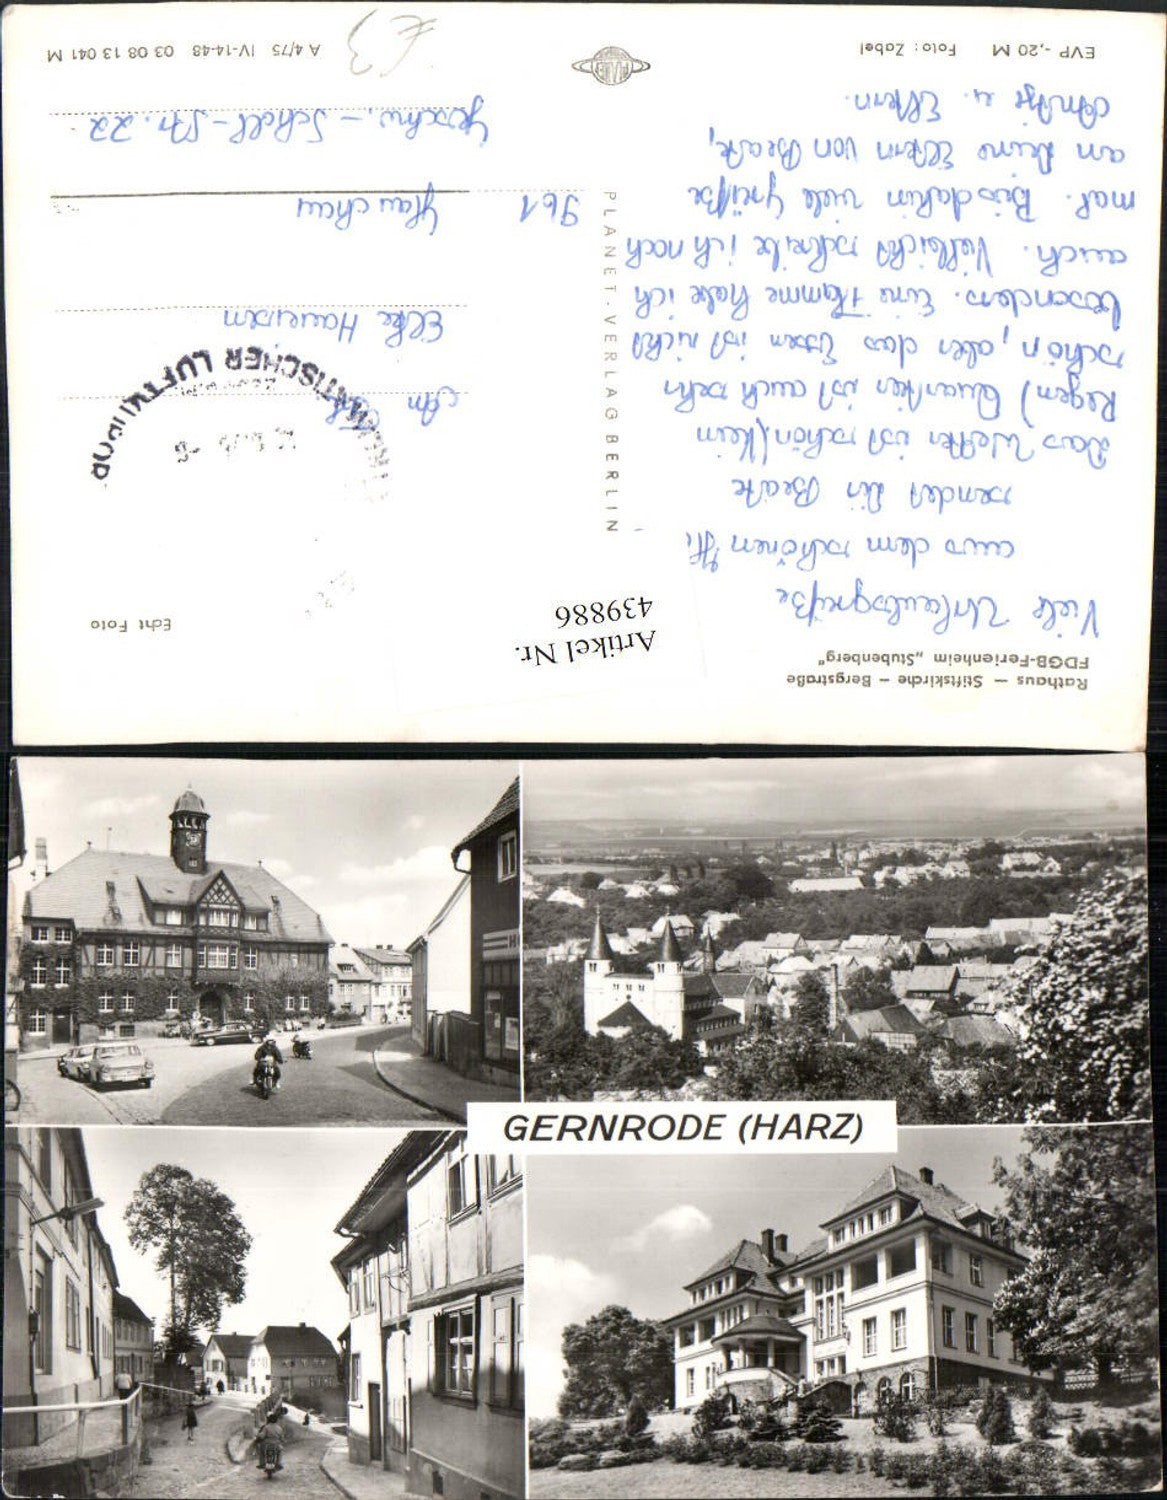 Rathaus — Stiftskirche — Bergstraße
FDGB-Ferienheim „Stubenberg"
Viele Urlaubsgrüße
aus dem schönen
sendet dir Beate
Das Wetter ist schön (kein
Regen) Quartier ist auch sehr
schön, aber das Essen ist nicht
besonders. Eine Flamme habe ich
auch. Vielleicht schreibe ich noch
mal. Bisdahin viele Grüße
an deine Eltern von Beate,
Antje u. Eltern.
EVP -,20 M Foto: Zabel
PLANET-VERLAG BERLIN
PLANET
Artikel Nr.
439886
Echt Foto
ARTISCHER LUFTKURORT
An
Elke
961 Glauchau
Geschw.-Scholl-Str. 22
A 4/75 IV-14-48 03 08 13 041 M
€3
GERNRODE (HARZ)